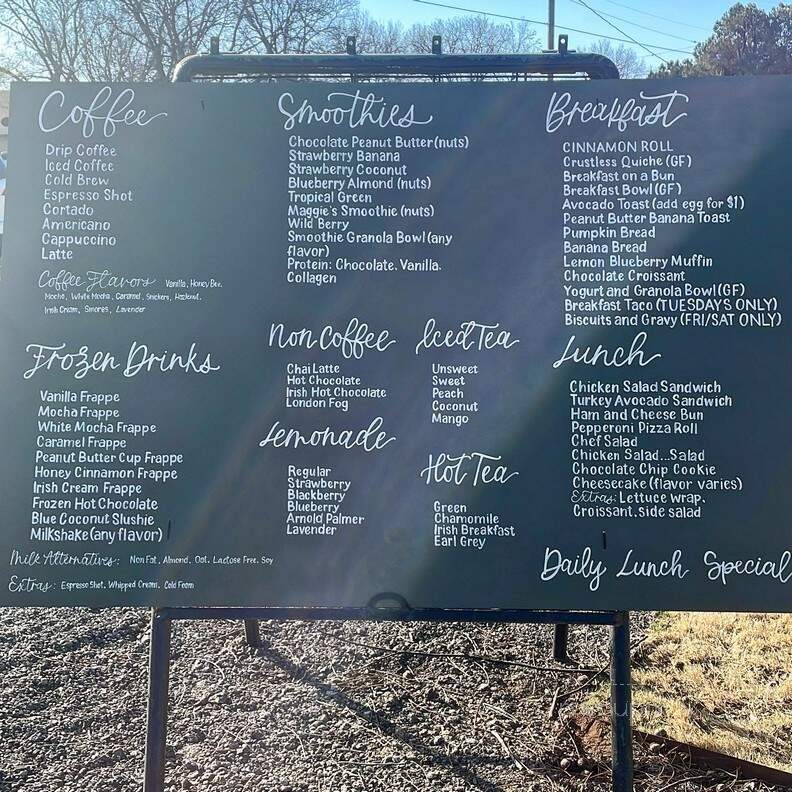 Coffee
Drip Coffee
Iced Coffee
Cold Brew
Espresso Shot
Cortado
Americano
Cappuccino
Latte
Coffee Flavors Vanilla, Honey Bee,
Mocha, White Mocha, Caramel, Snickers, Hazelnut,
Irish Cream, Smores, Lavender
Frozen Drinks
Vanilla Frappe
Mocha Frappe
White Mocha Frappe
Caramel Frappe
Peanut Butter Cup Frappe
Honey Cinnamon Frappe
Irish Cream Frappe
Frozen Hot Chocolate
Blue Coconut Slushie
Milkshake (any flavor)
Milk Alternatives: Non Fat, Almond, Oat, Lactose Free, Soy
Extras: Espresso Shot, Whipped Cream, Cold Foam
Smoothies
Chocolate Peanut Butter (nuts)
Strawberry Banana
Strawberry Coconut
Blueberry Almond (nuts)
Tropical Green
Maggie's Smoothie (nuts)
Wild Berry
Smoothie Granola Bowl (any
flavor)
Protein: Chocolate, Vanilla,
Collagen
Non Coffee
Chai Latte
Hot Chocolate
Irish Hot Chocolate
London Fog
Lemonade
Regular
Strawberry
Blackberry
Blueberry
Arnold Palmer
Lavender
Iced Tea
Unsweet
Sweet
Peach
Coconut
Mango
Hot Tea
Green
Chamomile
Irish Breakfast
Earl Grey
Breakfast
CINNAMON ROLL
Crustless Quiche (GF)
Breakfast on a Bun
Breakfast Bowl (GF)
Avocado Toast (add egg for $1)
Peanut Butter Banana Toast
Pumpkin Bread
Banana Bread
Lemon Blueberry Muffin
Chocolate Croissant
Yogurt and Granola Bowl (GF)
Breakfast Taco (TUESDAYS ONLY)
Biscuits and Gravy (FRI/SAT ONLY)
Lunch
Chicken Salad Sandwich
Turkey Avocado Sandwich
Ham and Cheese Bun
Pepperoni Pizza Roll
Chef Salad
Chicken Salad...Salad
Chocolate Chip Cookie
Cheesecake (flavor varies)
Extras: Lettuce wrap,
Croissant, side salad
Daily Lunch Special